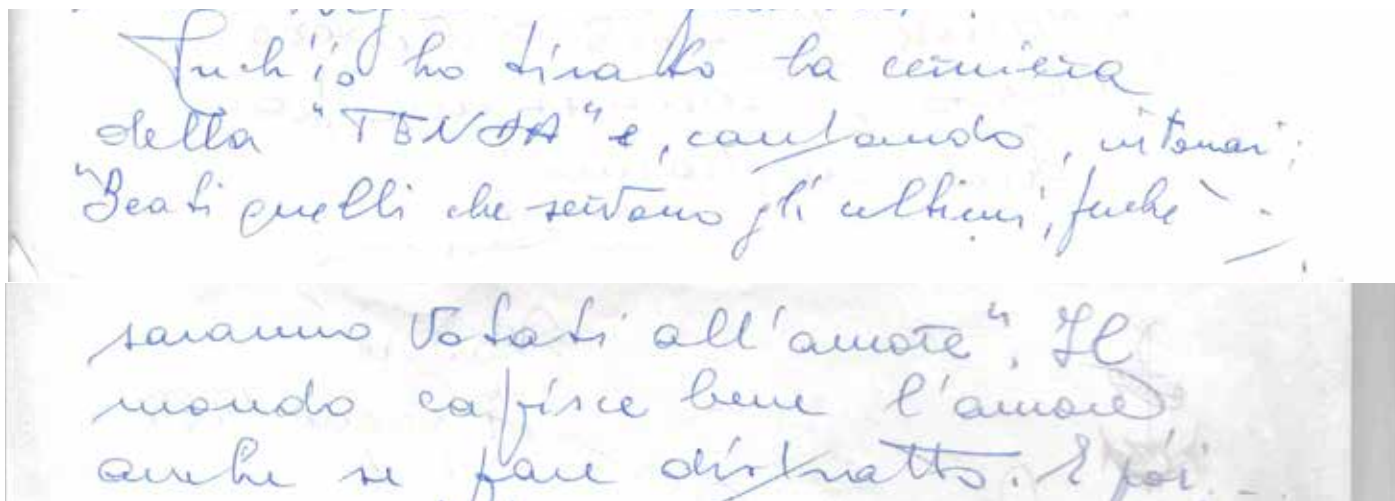 Anch'io ho tirato la cerniera
della "TENDA" e, cantando, intonai:
"Beati quelli che servono gli ultimi, perché
saranno votati all'amore". Il
mondo capisce bene l'amore
anche se pare distratto. E poi...